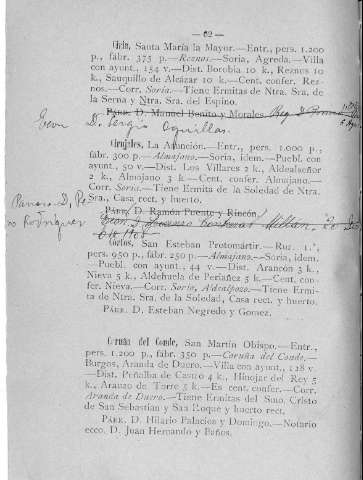 — 62 —
Ciria, Santa María la Mayor.—Entr., pers. 1.200
p., fábr. 375 p.—Reznos.—Soria, Agreda.—Villa
con ayunt., 154 v.—Dist. Borobia 10 k., Reznos 10
k., Sauquillo de Alcázar 10 k.—Cent. confer. Rez-
nos.—Corr. Soria.—Tiene Ermitas de Ntra. Sra. de
la Serna y Ntra. Sra. del Espino.
Párr. D. Manuel Benito y Morales.
Econ D. Sergio Aguillas.
Cirujales, La Asunción.—Entr., pers. 1.000 p.,
fábr. 300 p.—Almajano.—Soria, idem.—Puebl. con
ayunt., 50 v.—Dist. Los Villares 2 k., Aldealseñor
2 k., Almajano 3 k.—Cent. confer. Almajano.—
Corr. Soria.—Tiene Ermita de la Soledad de Ntra.
Sra., Casa rect. y huerto.
Párr. D. Ramón Puente y Rincón.
Rodríguez
Cortos, San Esteban Protomártir.—Rur. 1.ª,
pers. 950 p., fábr. 250 p.—Almajano.—Soria, idem.
—Puebl. con ayunt., 44 v.—Dist. Arancón 3 k.,
Nieva 5 k., Aldehuela de Periañez 5 k.—Cent. con-
fer. Nieva.—Corr. Soria, Aldealpozo.—Tiene Ermi-
ta de Ntra. Sra. de la Soledad, Casa rect. y huerto.
Párr. D. Esteban Negredo y Gomez.
Coruña del Conde, San Martín Obispo.—Entr.,
pers. 1.200 p., fábr. 350 p.—Coruña del Conde.—
Burgos, Aranda de Duero.—Villa con ayunt., 128 v.
—Dist. Peñalba de Castro 4 k., Hinojar del Rey 5
k., Arauzo de Torre 5 k.—Es cent. confer.—Corr.
Aranda de Duero.—Tiene Ermitas del Smo. Cristo
de San Sebastian y San Roque y huerto rect.
Párr. D. Hilario Palacios y Domingo.—Notario
ecco. D. Juan Hernando y Baños.